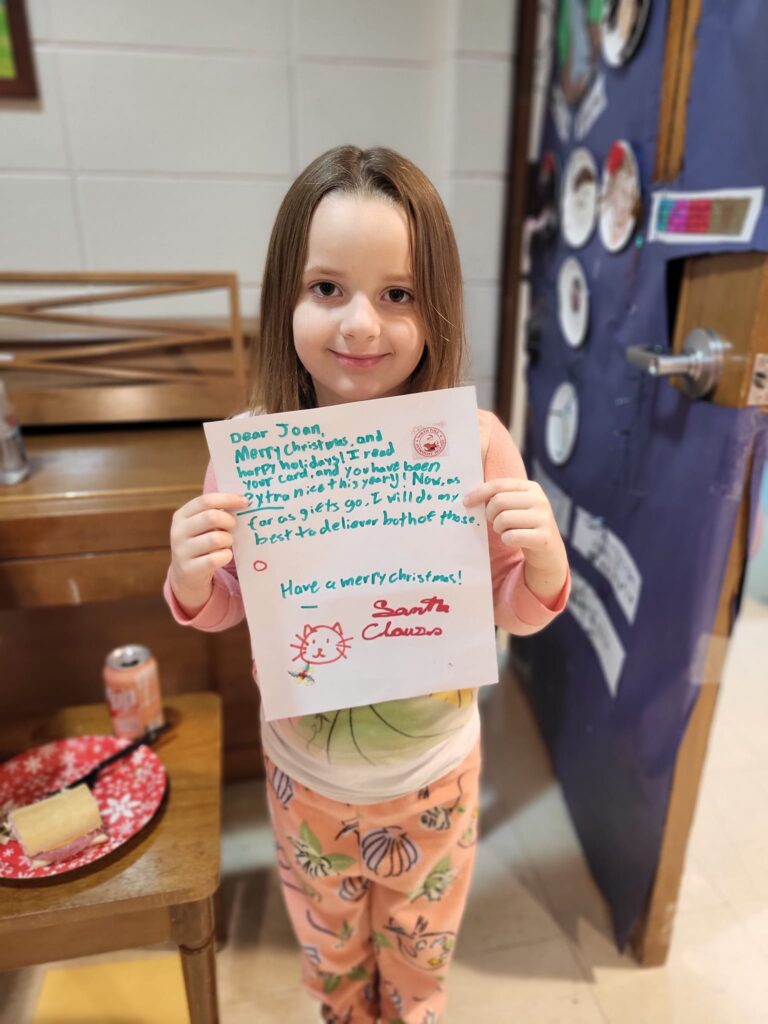 Dear Joan,
Merry Christmas, and
happy holidays! I read
your card, and you have been
extra nice this year! Now, as
far as giets go, I will do my
best to deliever both of those.
Have a merry christmas!
Santa
Clauzs